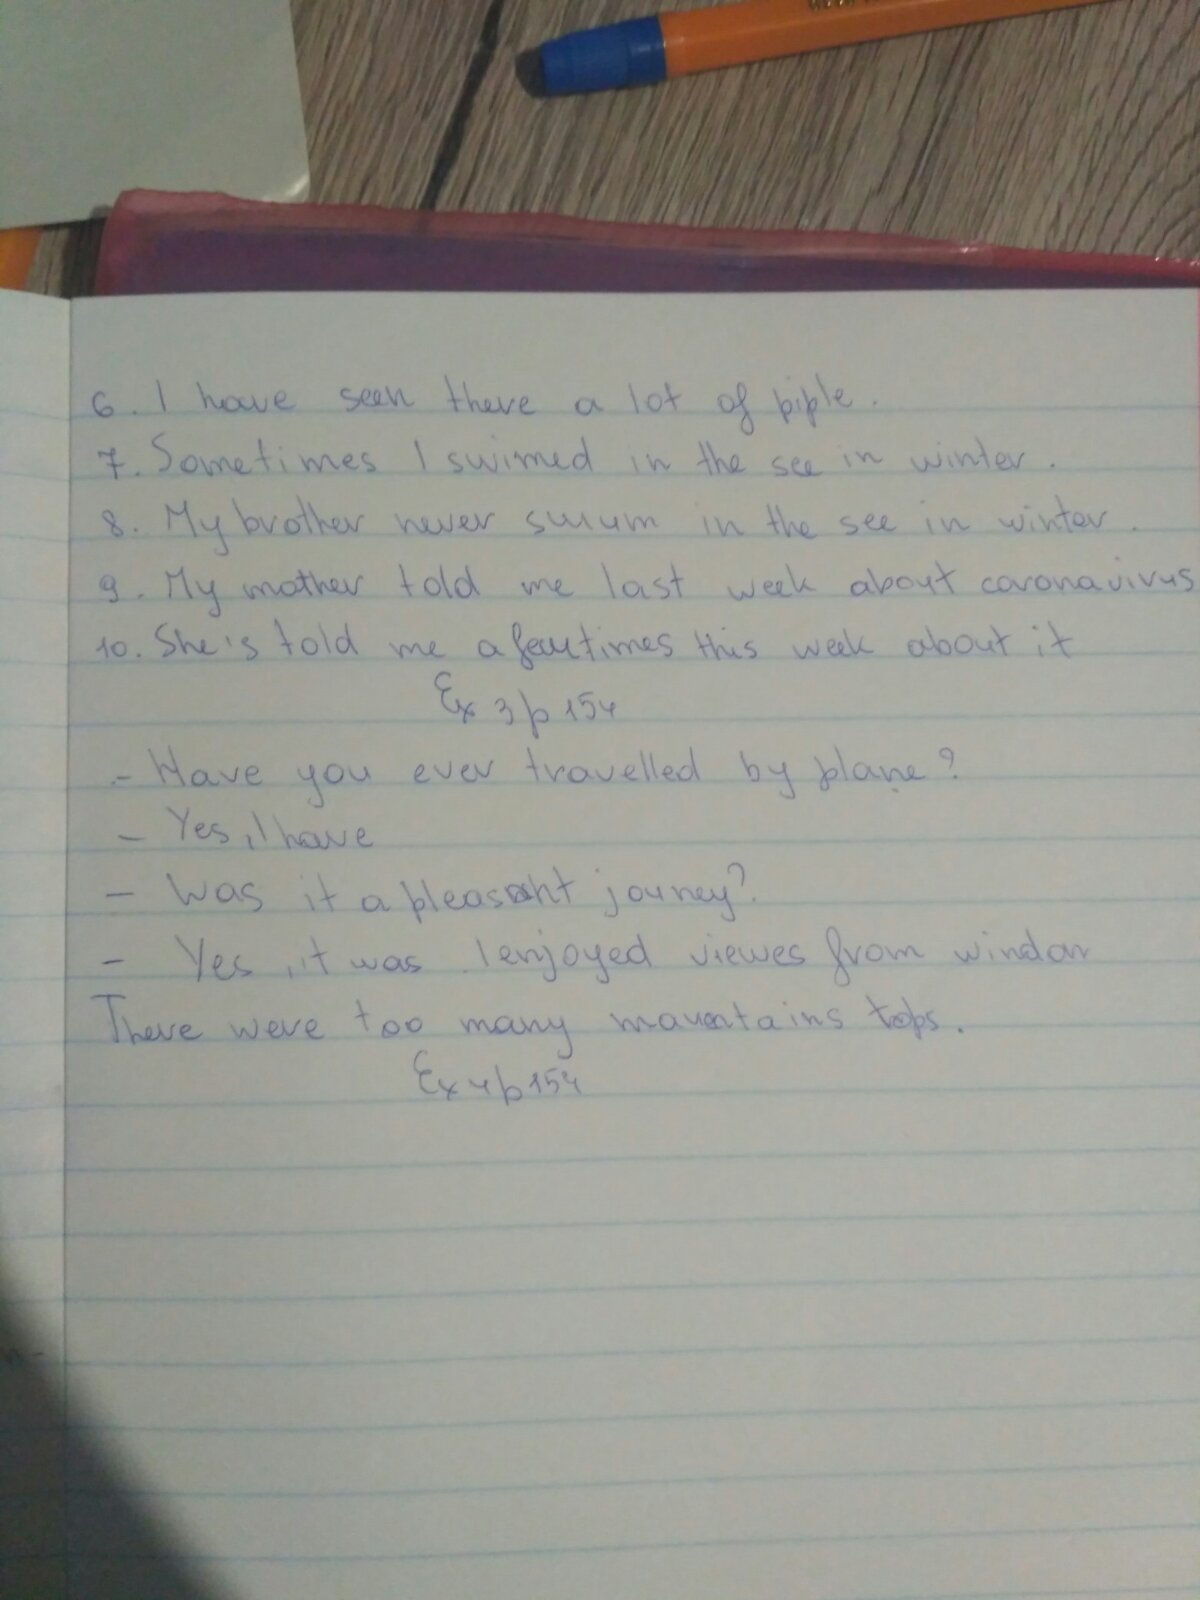 6. I have seen there a lot of piple.
7. Sometimes I swimed in the see in winter.
8. My brother never swum in the see in winter.
9. My mother told me last week about coronavirus
10. She's told me a few times this week about it
Ex 3 p 154
- Have you ever travelled by plane?
- Yes, I have
- Was it a pleasant jouney?
- Yes, it was. I enjoyed viewes from window
There were too many mauntains tops.
Ex 4 p 154